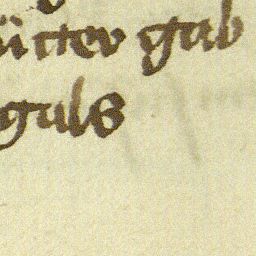 ütter gab
guls